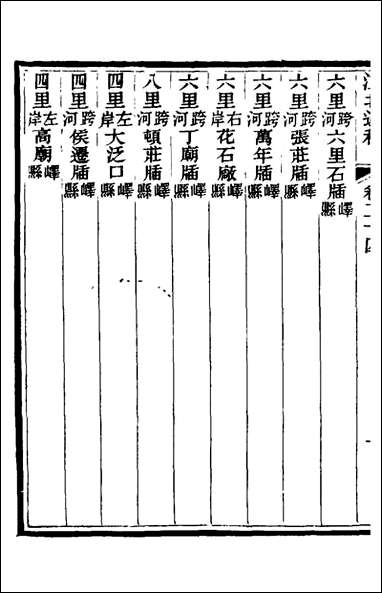 江北運程 卷二十四
六里跨河六里石牐嶧縣
六里跨河張莊牐嶧縣
六里跨河萬年牐嶧縣
六里右岸花石廠嶧縣
六里跨河丁廟牐嶧縣
八里跨河頓莊牐嶧縣
四里左岸大泛口嶧縣
四里跨河侯遷牐嶧縣
四里左岸高廟嶧縣